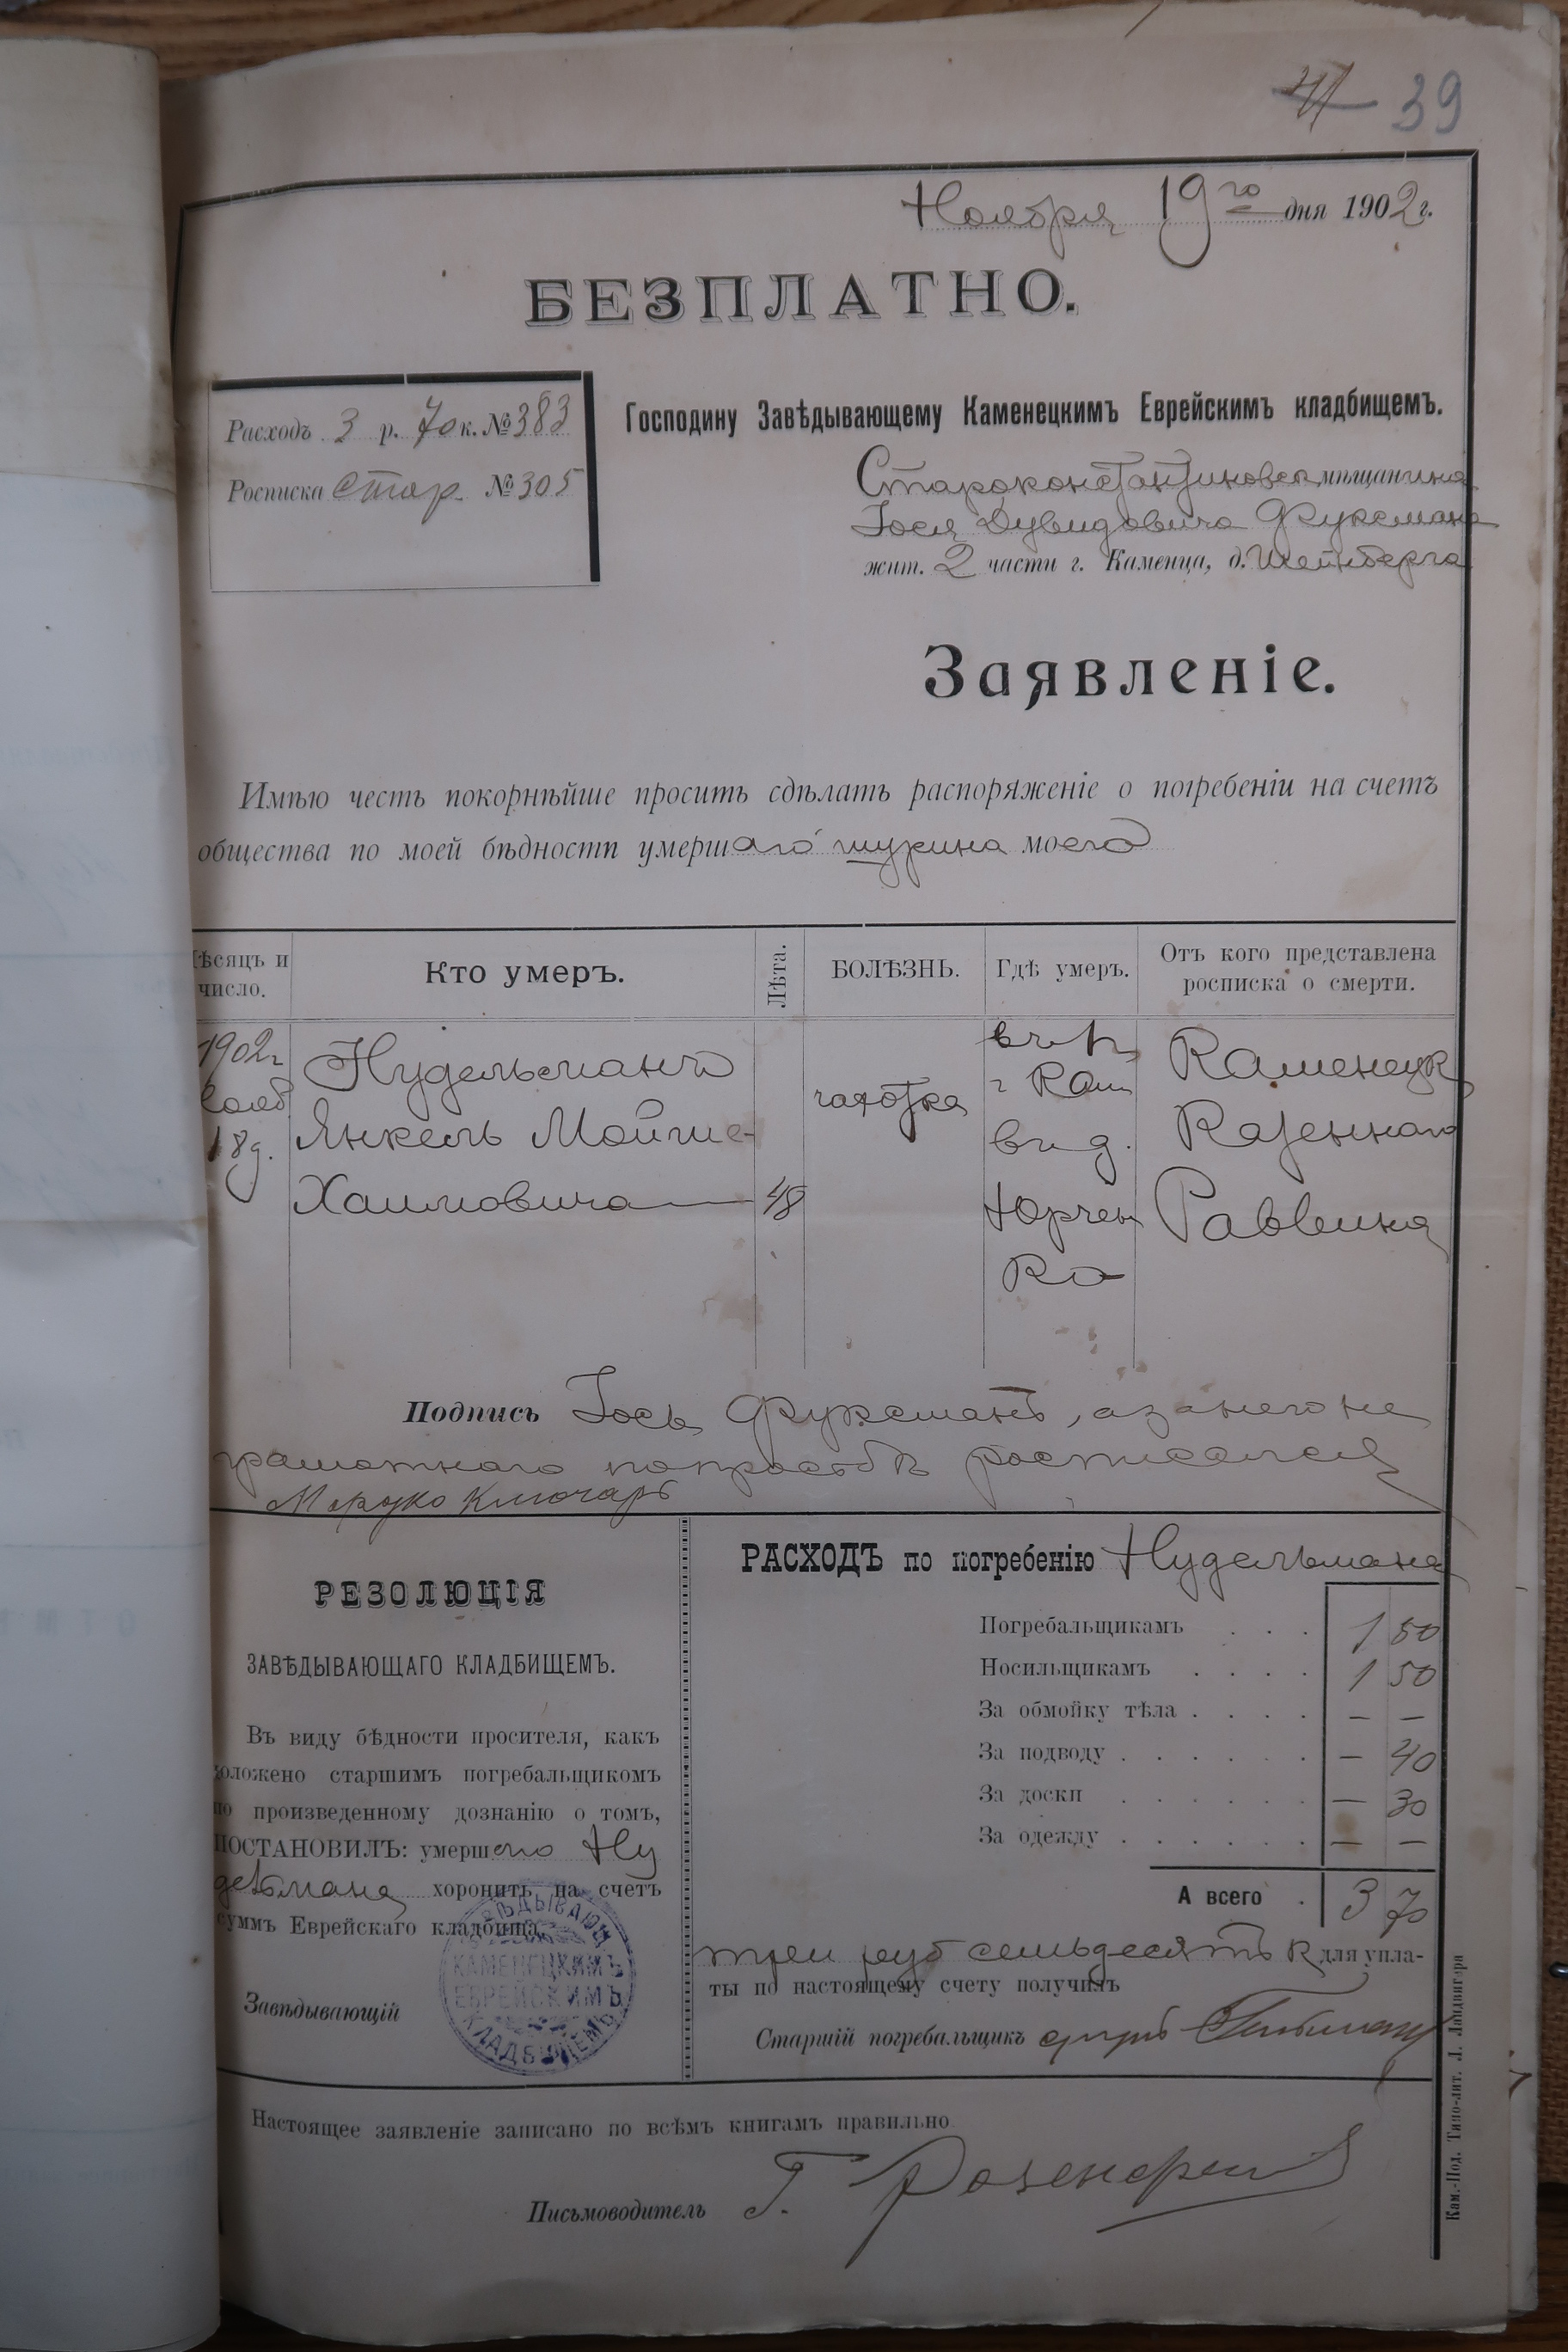 39
Ноября 19го дня 1902 г.
БЕЗПЛАТНО.
Расходъ 3 р. 70 к. № 383
Росписка стар. № 305
Господину Завѣдывающему Каменецкимъ Еврейскимъ кладбищемъ.
Староконстантиновск мѣщанина
Іося Дувидовича Фуксмана
жит. 2 части г. Каменца, д. Шейнберга
Заявленіе.
Имѣю честь покорнѣйше просить сдѣлать распоряженіе о погребеніи на счетъ
общества по моей бѣдности умершаго шурина моего
Мѣсяцъ и число.
Кто умеръ.
Лѣта.
БОЛѢЗНЬ.
Гдѣ умеръ.
Отъ кого представлена росписка о смерти.
1902г
18д.
Нудельманъ
Янкель Мойше-
Хаимовича
48
чахотка
г Кам
въ д.
Юрчен
ко
Каменецк
Казеннаго
Раввина
Подпись Іось Фуксманъ, а за него не
грамотнаго по просьбѣ росписался
Мардко Ключаръ
РЕЗОЛЮЦІЯ
ЗАВѢДЫВАЮЩАГО КЛАДБИЩЕМЪ.
Въ виду бѣдности просителя, какъ
доложено старшимъ погребальщикомъ
по произведенному дознанію о томъ,
ПОСТАНОВИЛЪ: умершаго Ну
дельмана хоронить на счетъ
суммъ Еврейскаго кладбища.
Завѣдывающій
ЗАВѢДЫВАЮЩ
КАМЕНЕЦКИМЪ
ЕВРЕЙСКИМЪ
КЛАДБИЩЕМЪ
РАСХОДЪ по погребенію Нудельмана
Погребальщикамъ . . . 1 50
Носильщикамъ . . . . 1 50
За обмойку тѣла . . . . — —
За подводу . . . . . . — 40
За доски . . . . . . — 30
За одежду . . . . . . — —
А всего . 3 70
три руб семьдесятъ к для упла-
ты по настоящему счету получилъ
Старшій погребальщикъ
Настоящее заявленіе записано по всѣмъ книгамъ правильно
Письмоводитель Г.
Кам.-Под. Типо-лит. Л. Ландвигера